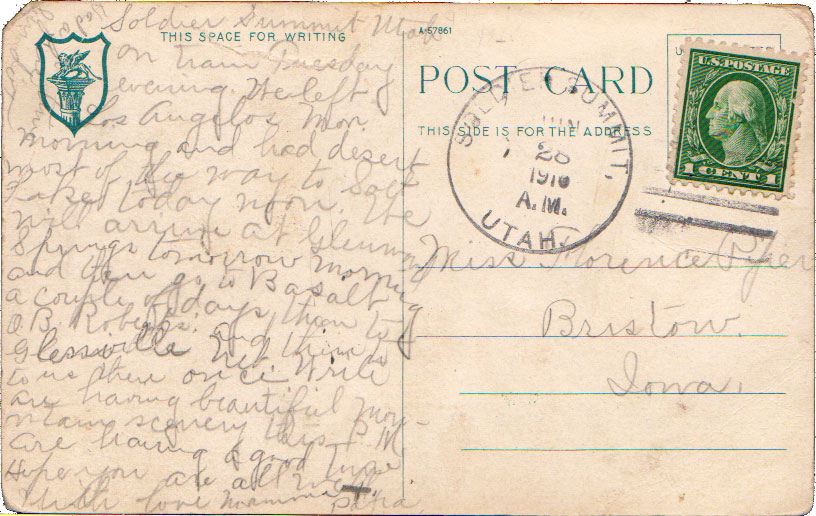 Soldier Summit Utah
THIS SPACE FOR WRITING
on train Tuesday
evening. We left
Los Angelos Mon
morning and had desert
most of the way to Salt
Lake today noon. We
will arrive at Glenwood
Springs tomorrow morning
and then go to Basalt
a couple of days then to
O.B. Roberts. and
to us there once. Write
are having beautiful moun-
tain scenery this P.M.
are having a good time
Hope you are all well
With love Mamma + Papa
A-57861
POST CARD
THIS SIDE IS FOR THE ADDRESS
SOLDIER SUMMIT,
JUN
28
1916
A.M.
UTAH
U.S. POSTAGE
1 CENT 1
Miss Florence
Bristow.
Iowa.